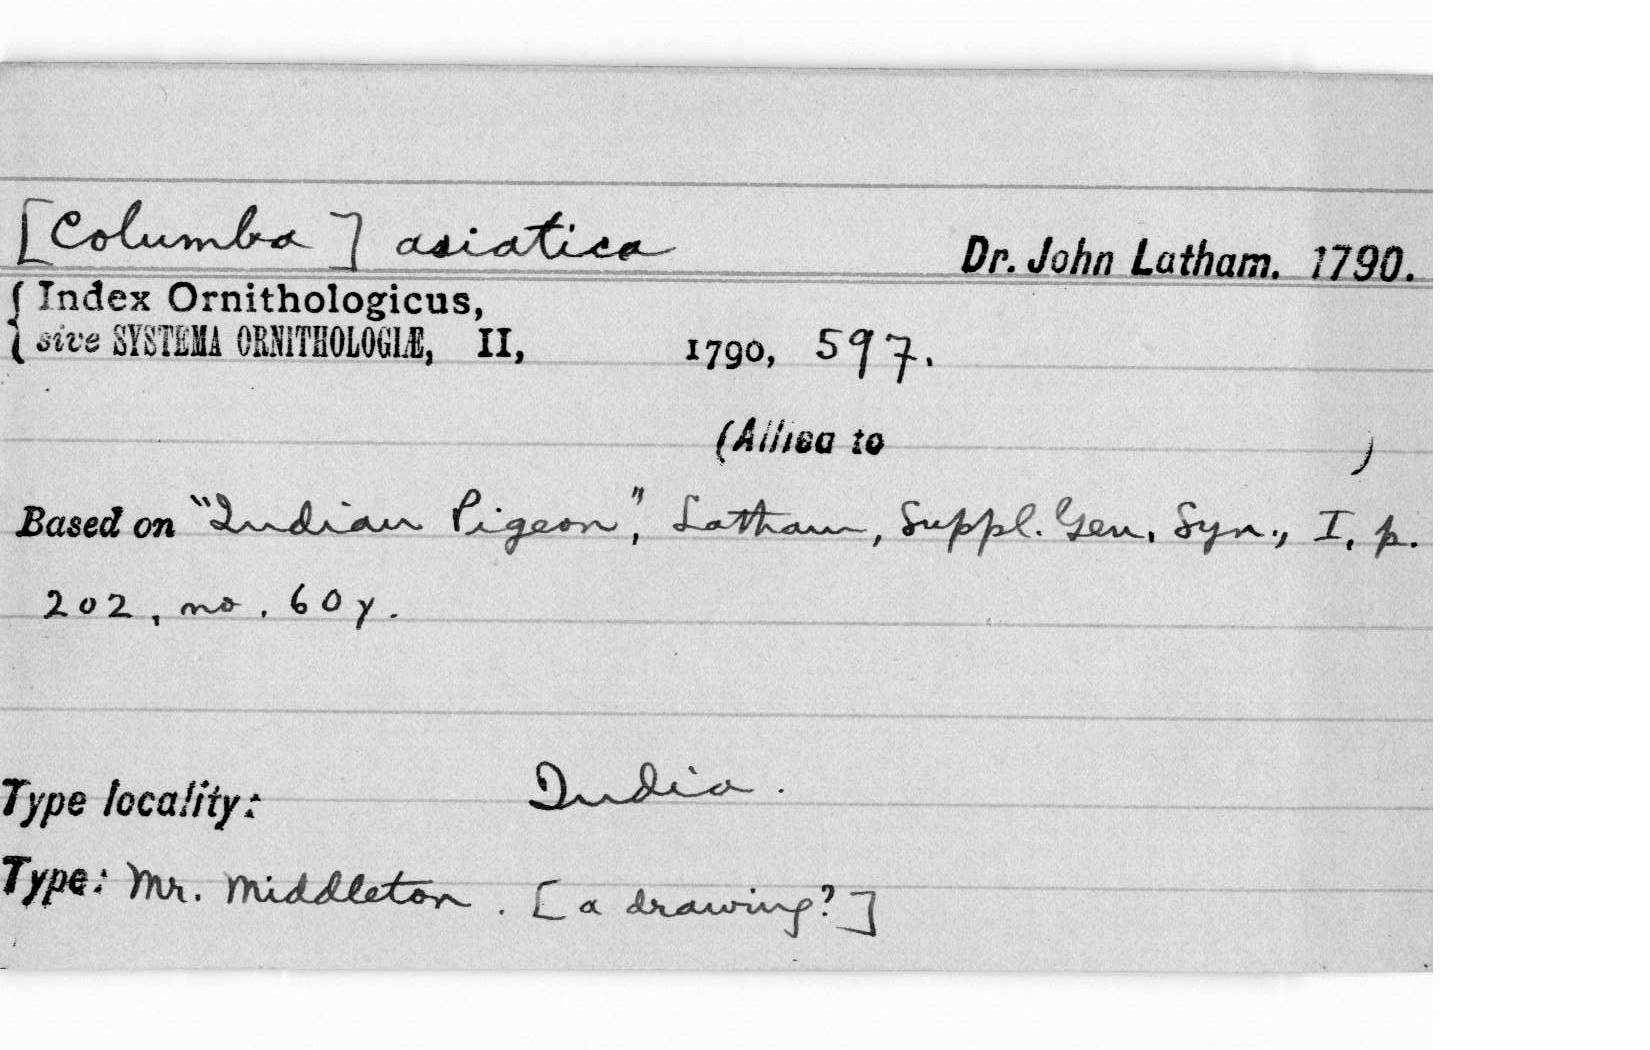 [Columba] asiatica Dr. John Latham. 1790.
{ Index Ornithologicus,
sive SYSTEMA ORNITHOLOGIÆ, II, 1790, 597.
(Allied to )
Based on "Indian Pigeon", Latham, Suppl. Gen. Syn., I, p.
202, no. 60γ.
Type locality: India.
Type: Mr. Middleton. [a drawing?]